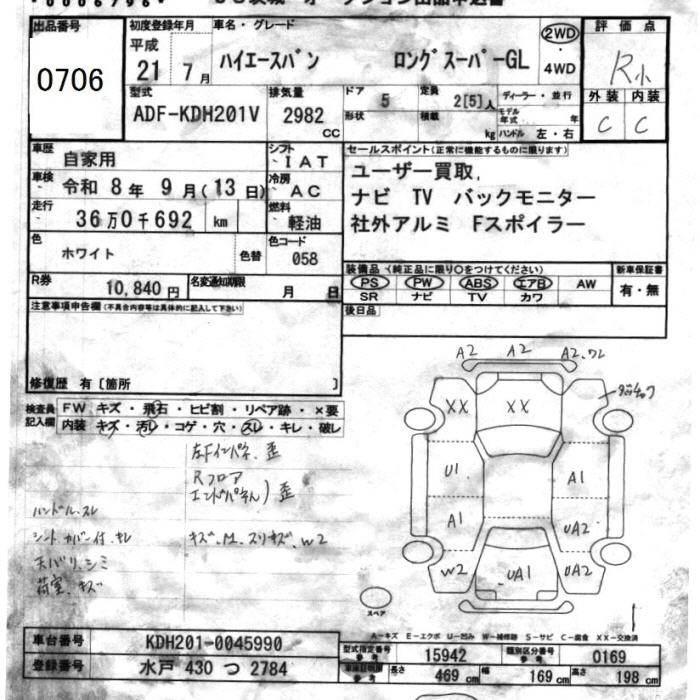 出品番号
0706
初度登録年月
平成
21 7月
車名・グレード
ハイエースバン ロングスーパーGL
2WD
・
4WD
評価点
R小
外装 内装
C C
型式
ADF-KDH201V
排気量
2982
CC
ドア 5
形状
定員 2[5]人
積載 kg
ディーラー・並行
モデル年式 年
ハンドル 左・右
車歴 自家用
車検 令和 8年 9月(13日)
走行 36万0千692 km
シフト IAT
冷房 AC
燃料 軽油
色 ホワイト 色替
色コード 058
R券 10,840円
名変通知期限 月 日
セールスポイント(正常に機能するものに限ります)
ユーザー買取,
ナビ TV バックモニター
社外アルミ Fスポイラー
装備品(純正品に限り○をつけてください)
PS PW ABS エアB AW
SR ナビ TV カワ
新車保証書
有・無
後日品
注意事項申告欄(不具合内容等は具体的に記入して下さい)
修復歴 有〔箇所 〕
検査員
記入欄
FW キズ・飛石・ヒビ割・リペア跡・×要
内装 キズ・汚レ・コゲ・穴・スレ・キレ・破レ
左Fインパネ. 歪
Rフロア
エンドパネル) 歪
ハンドル.スレ
シートカバー付.キレ
天バリ.シミ
荷室.キズ
キズ.M.スリキズ.W2
A2 A2 A2.ワレ
XX XX
U1 A1
A1 UA2
W2 UA1 UA2
スペア
A-キズ E-エクボ U-凹み W-補修跡 S-サビ C-腐食 XX-交換済
車台番号 KDH201-0045990
登録番号 水戸 430 つ 2784
型式指定番号 参考 15942
類別区分番号 参考 0169
長さ 469 cm 幅 169 cm 高さ 198 cm